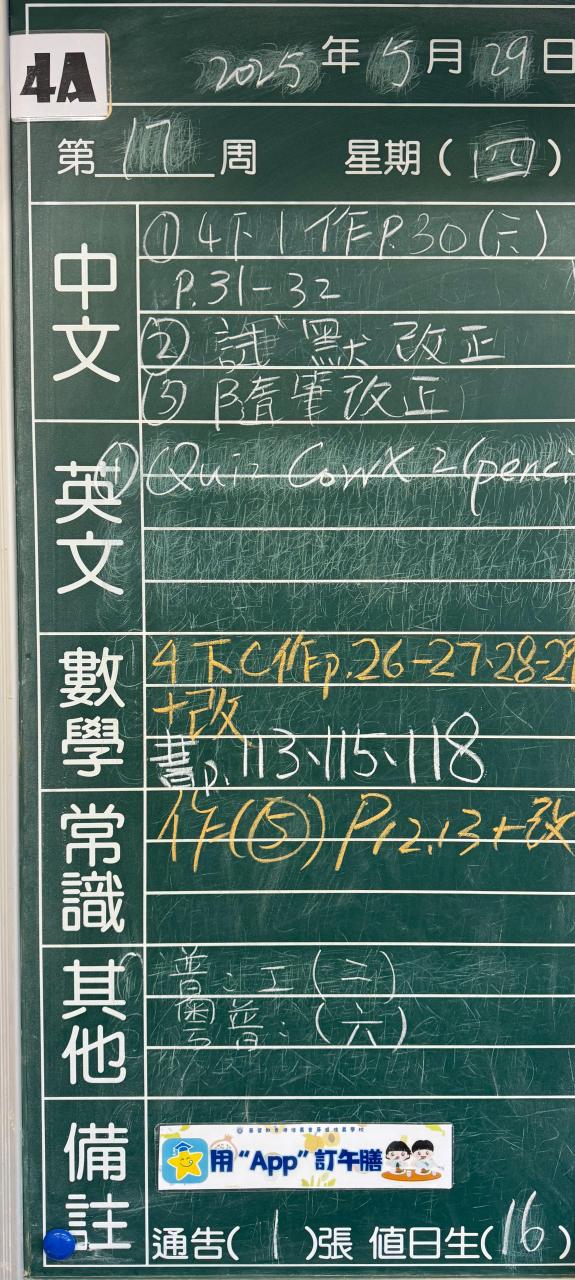 4A
2025年5月29日
第17周 星期(四)
中文
① 4下1作P.30(六)
P.31-32
② 試默改正
③ 隨筆改正
英文
① Quiz CowX 2(penci
數學
4下C作p.26-27、28-29
+改
書p.113、115、118
常識
作(⑤) P12,13+改
其他
普:工(二)
粵普:(六)
備註
用“App”訂午膳
通告(1)張 值日生(16)